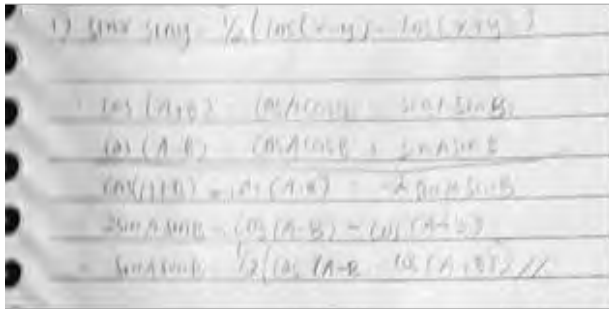 1) sinx siny = 1/2 (cos(x-y) - cos(x+y)
cos (A+B) = cosAcosB - sinA sinB
cos (A-B) = cosAcosB + sinAsinB
cos(A+B) - cos (A-B) = -2 sinA sinB
2sinA sinB = cos (A-B) - cos (A+B)
= sinA sinB = 1/2 (cos (A-B - cos (A+B)) //